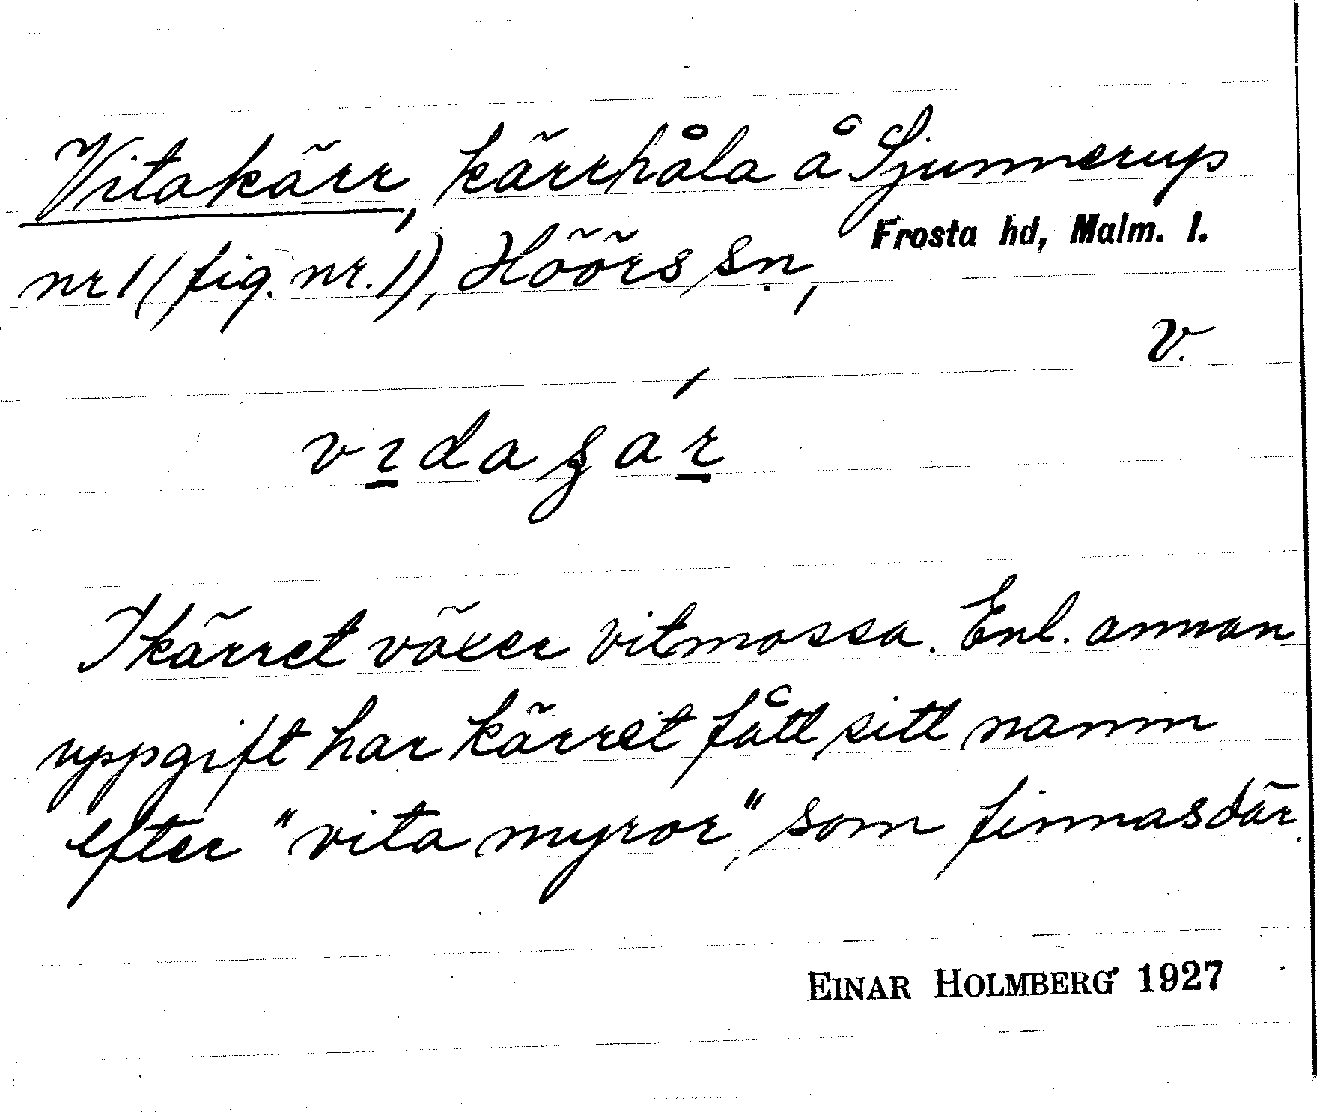 Vitakärr, kärrhåla å Sjunnerup
Frosta hd, Malm. l.
nr 1 (fig. nr. 1), Höörs sn,
v.
vɪdagáɾ
I kärret växer vitmossa. Enl. annan
uppgift har kärret fått sitt namn
efter "vita myror", som finnas där.
EINAR HOLMBERG 1927